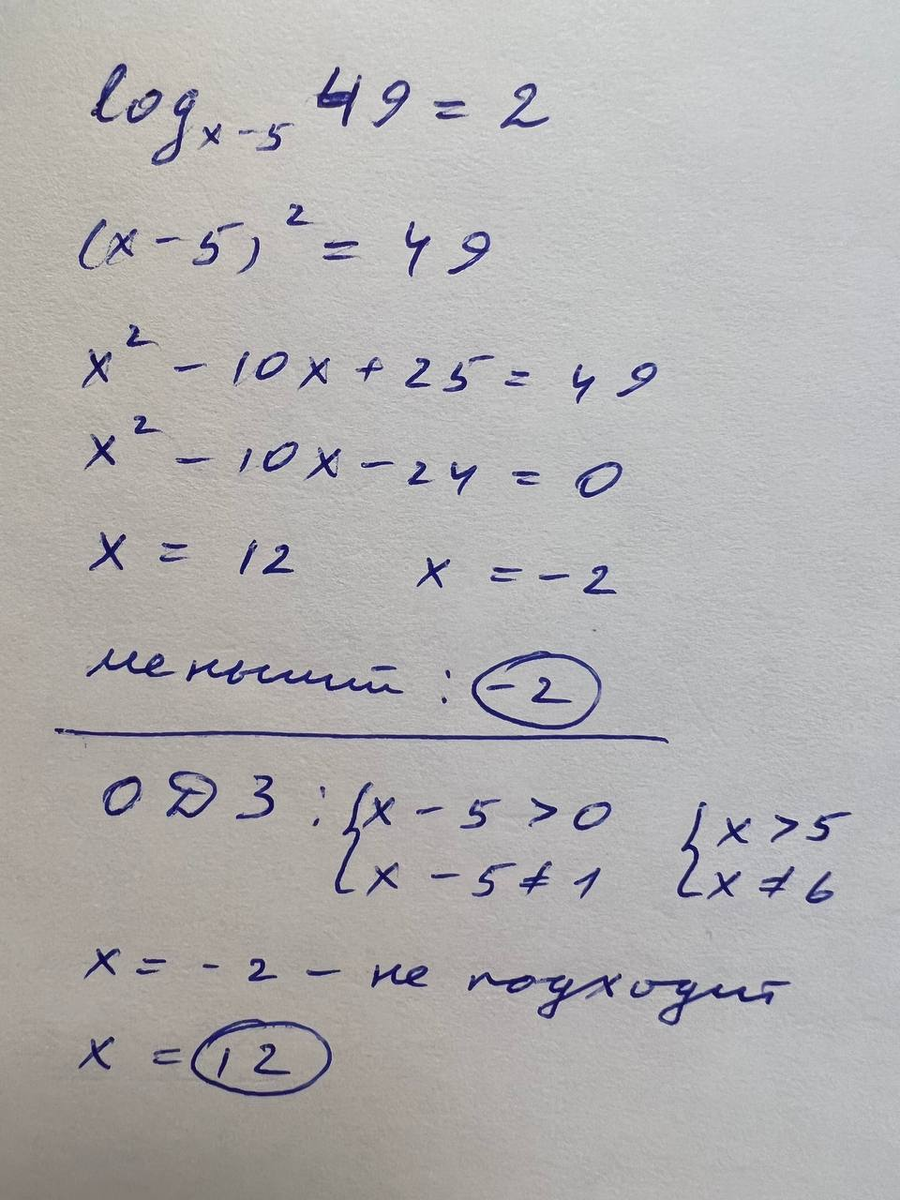 log x-5 49 = 2
(x - 5)² = 49
x² - 10x + 25 = 49
x² - 10x - 24 = 0
x = 12 x = -2
меньший : -2
ОДЗ : { x - 5 > 0 { x > 5
{ x - 5 ≠ 1 { x ≠ 6
x = - 2 - не подходит
x = 12